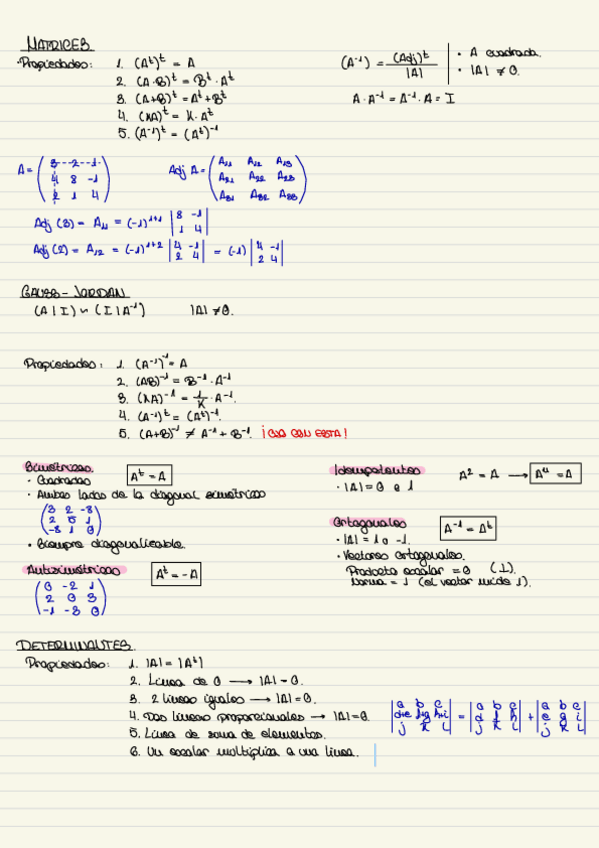 MATRICES
· Propiedades: 1. (Aᵗ)ᵗ = A
2. (A·B)ᵗ = Bᵗ · Aᵗ
3. (A+B)ᵗ = Aᵗ + Bᵗ
4. (KA)ᵗ = K · Aᵗ
5. (A⁻¹)ᵗ = (Aᵗ)⁻¹
(A⁻¹) = (Adj)ᵗ / |A|
· A cuadrada.
· |A| ≠ 0.
A · A⁻¹ = A⁻¹ · A = I
A = ( 3 -2 -1
4 8 -1
2 1 4 )
Adj A = ( A₁₁ A₁₂ A₁₃
A₂₁ A₂₂ A₂₃
A₃₁ A₃₂ A₃₃ )
Adj (3) = A₁₁ = (-1)¹⁺¹ | 8 -1 |
| 1 4 |
Adj (2) = A₁₂ = (-1)¹⁺² | 4 -1 | = (-1) | 4 -1 |
| 2 4 | | 2 4 |
GAUSS - JORDAN
(A | I) ∽ (I | A⁻¹) |A| ≠ 0.
Propiedades: 1. (A⁻¹)⁻¹ = A
2. (AB)⁻¹ = B⁻¹ · A⁻¹
3. (KA)⁻¹ = 1/K · A⁻¹.
4. (A⁻¹)ᵗ = (Aᵗ)⁻¹.
5. (A+B)⁻¹ ≠ A⁻¹ + B⁻¹. ¡CUA CON ESTA!
Simétricas. Aᵗ = A
· Cuadradas
· Ambos lados de la diagonal simétricos
( 3 2 -8
2 5 1
-8 1 0 )
· Siempre diagonalizable.
Antisimétricas Aᵗ = -A
( 0 -2 1
2 0 3
-1 -3 0 )
Idempotentes A² = A → Aⁿ = A
· |A| = 0 o 1
Ortogonales A⁻¹ = Aᵗ
· |A| = 1 o -1.
· Vectores ortogonales.
Producto escalar = 0 (⊥).
Norma = 1 (el vector mide 1).
DETERMINANTES.
Propiedades: 1. |A| = |Aᵗ|
2. Línea de 0 → |A| = 0.
3. 2 líneas iguales → |A| = 0.
4. Dos líneas proporcionales → |A| = 0.
5. Línea de suma de elementos.
6. Un escalar multiplica a una línea.
| a b c | = | a b c | + | a b c |
| d+e f+g h+i | | d f h | | e g i |
| j k l | | j k l | | j k l |